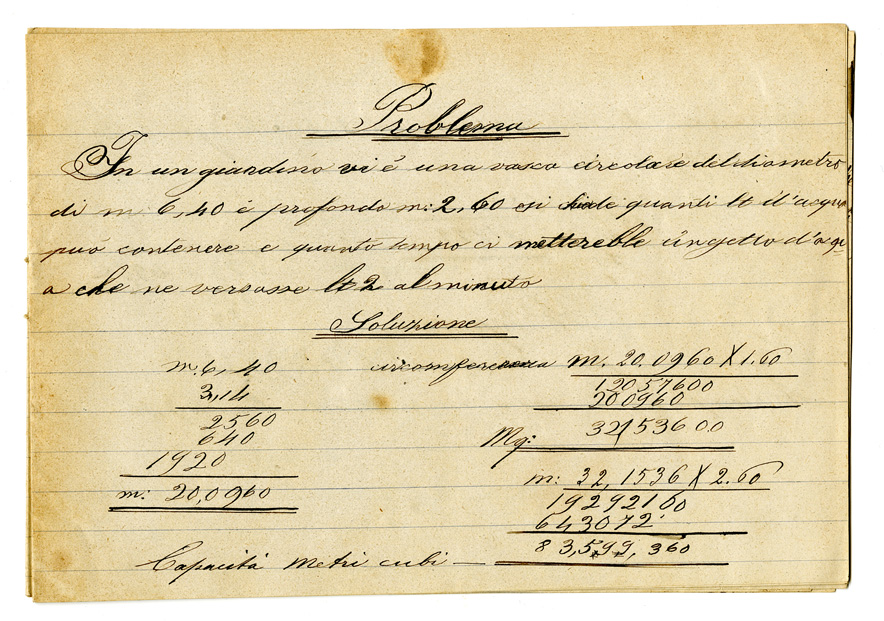 Problema
In un giardino vi é una vasca circolare del diametro
di m. 6,40 é profondo m: 2,60 si chiede quanti lt d'acqua
puó contenere e quanto tempo ci metterebbe un getto d'aqu-
a che ne versasse lt 2 al minuto
Soluzione
m. 6,40 circomferenza m. 20.0960 X 1.60
3,14 12057600
2560 200960
640 Mq: 32,1536 00
1920 m: 32,1536 X 2.60
m: 20,0960 19292160
643072
Capacitá metri cubi — 83,599,360